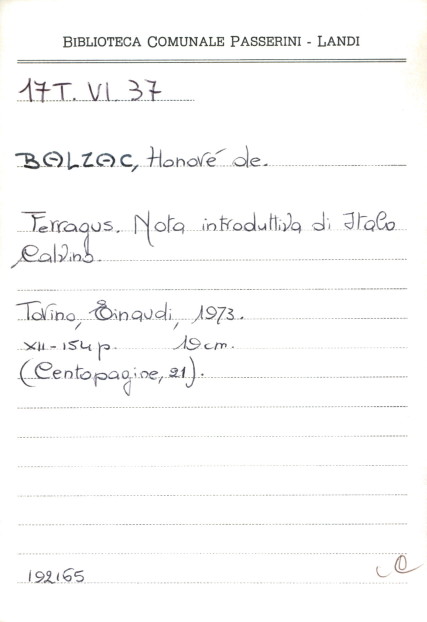 BIBLIOTECA COMUNALE PASSERINI - LANDI
17T. VI. 37
BALZAC, Honoré de.
Ferragus. Nota introduttiva di Italo
Calvino.
Torino, Einaudi, 1973.
XII-154 p. 19 cm.
(Centopagine, 21).
192165